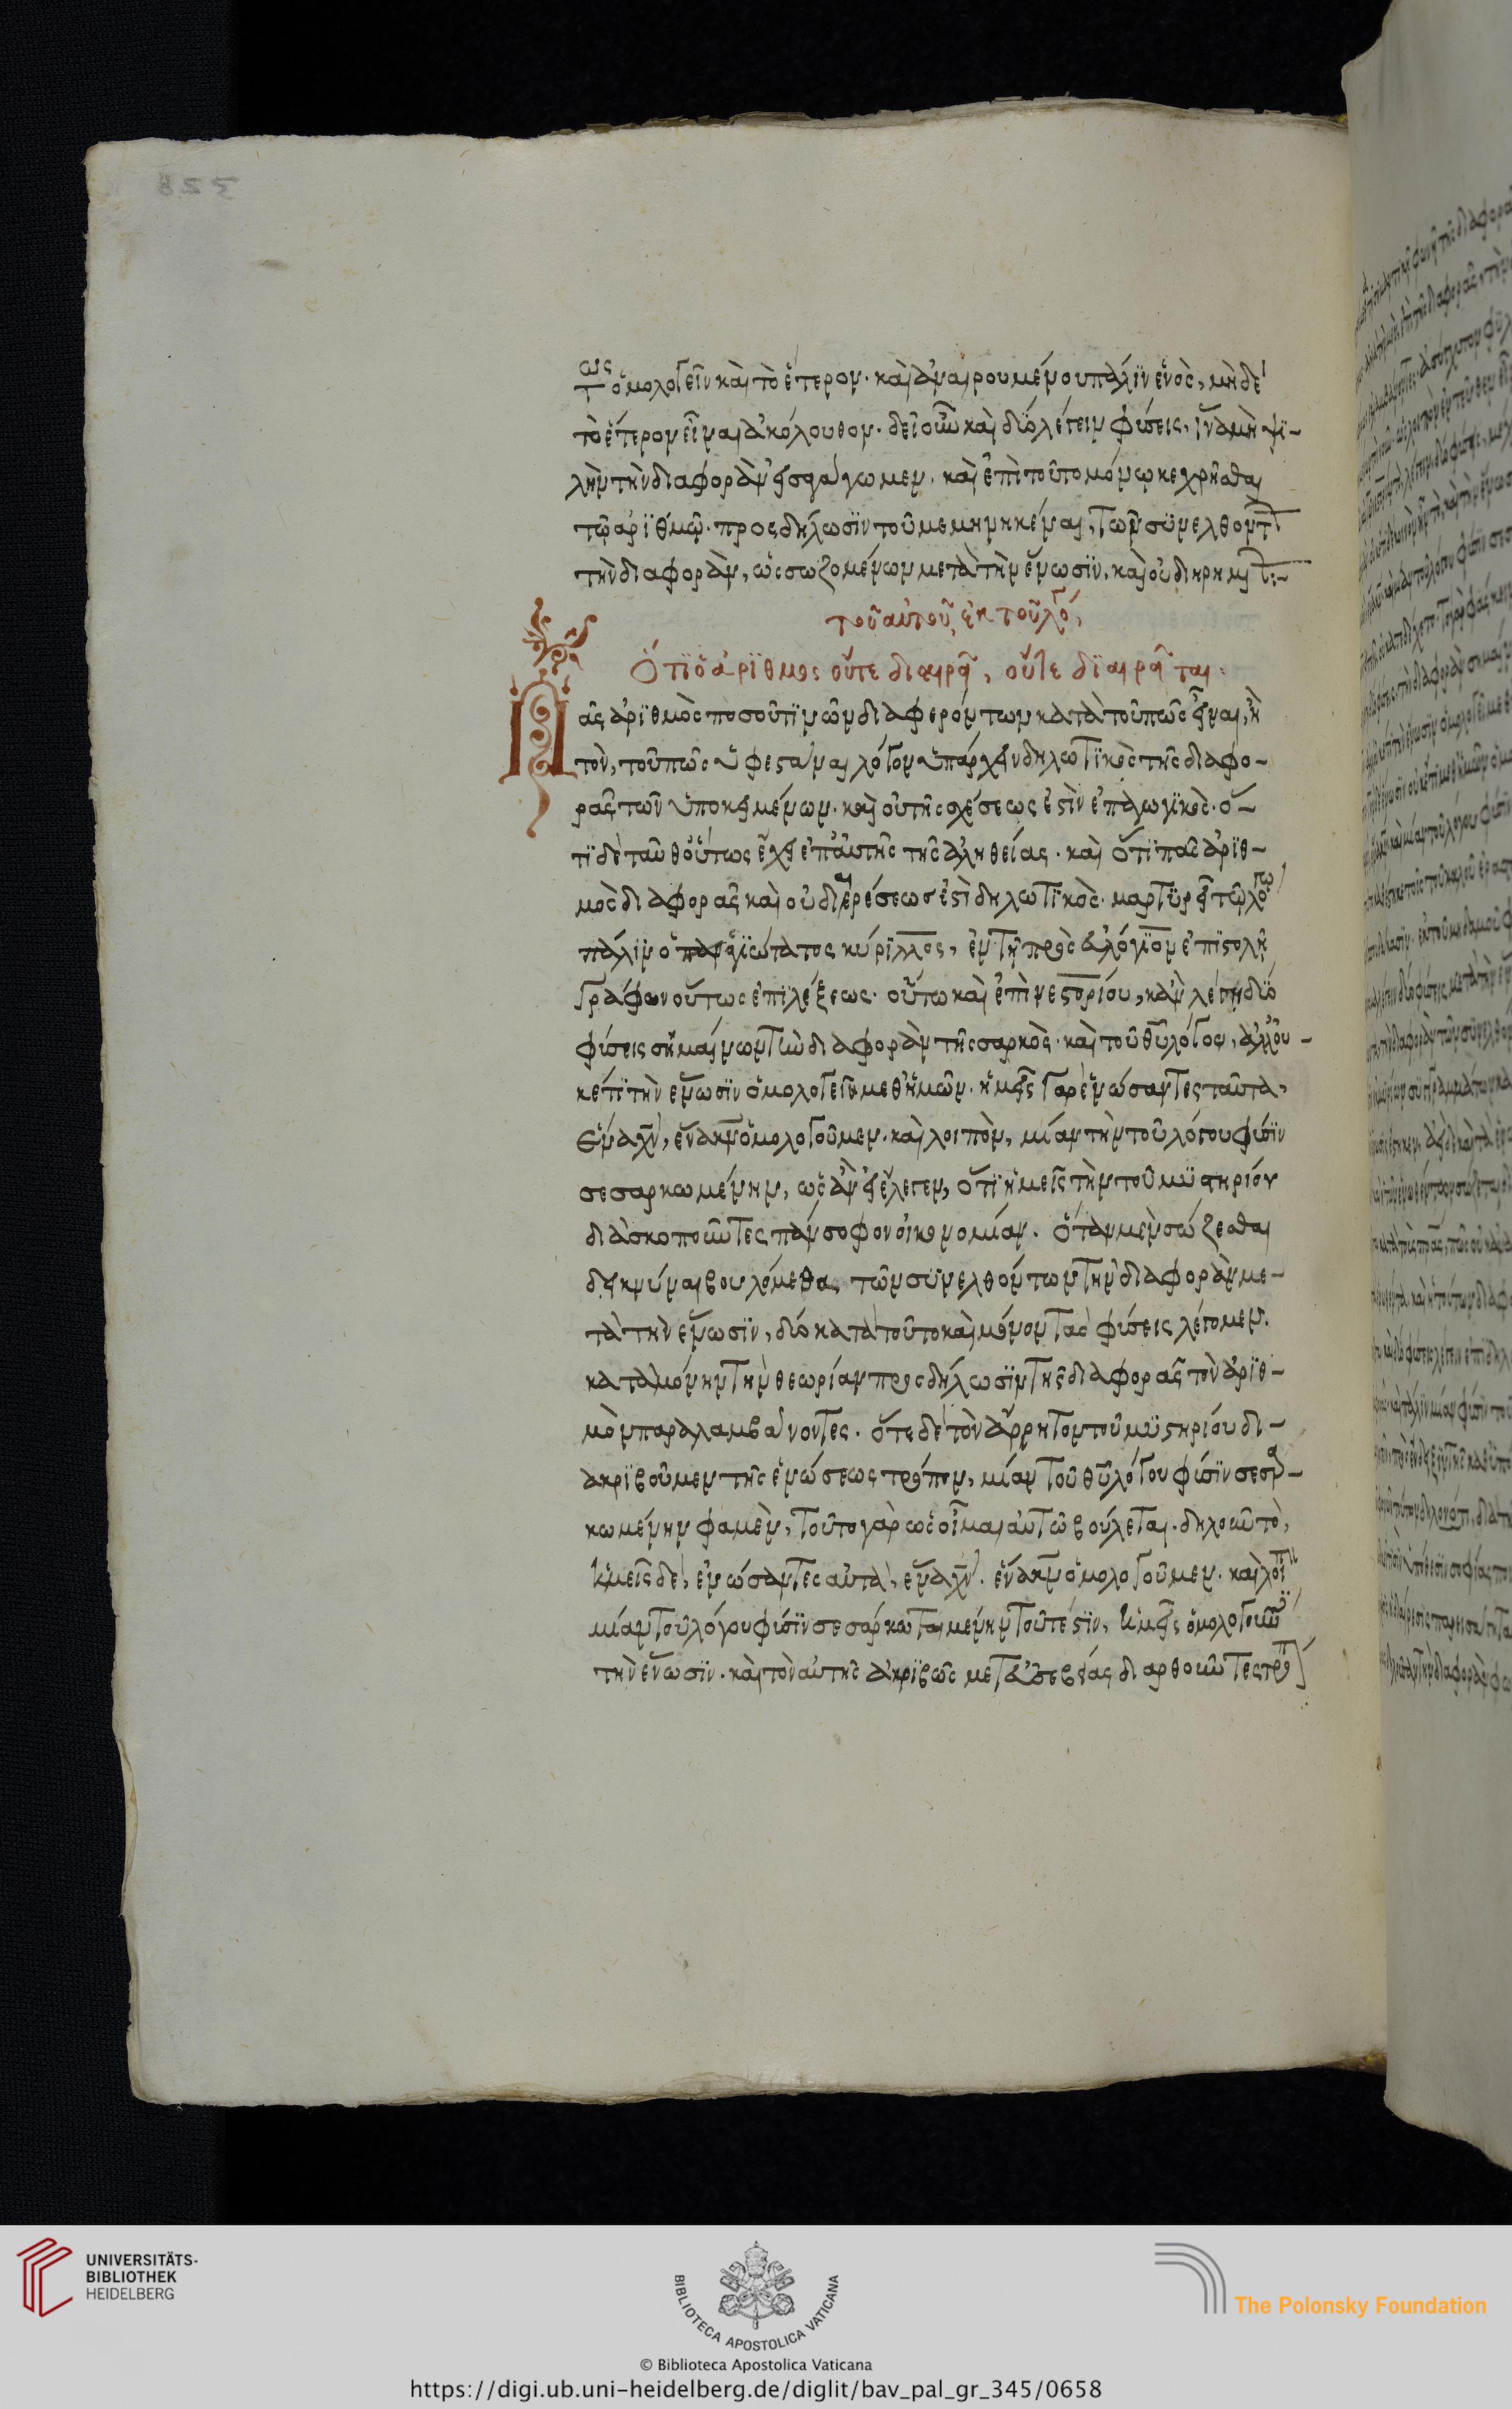 τ ὁμολογεῖν καὶ τὸ ἕτερον. καὶ ἀναιρουμένου πάλιν ἑνὸς, μὴ δὲ
τὸ ἕτερον εἶναι ἀκόλουθον. δεῖ οὖν καὶ δύο λέγειν φύσεις, ἵνα μὴ ψι-
λὴν τὴν διαφορὰν εἰσάγωμεν. καὶ ἐπὶ τοῦτο μόνῳ κεχρῆσθαι
τῷ ἀριθμῷ. πρὸς δήλωσιν τοῦ μεμενηκέναι, τῶν συνελθόντ
τὴν διαφορὰν, ὡς σωζομένων μετὰ τὴν ἕνωσιν. καὶ οὐ διῃρημ
τοῦ αὐτοῦ, ἐκ τοῦ
Ὅτι ὁ ἀριθμὸς οὔτε διαιρεῖ, οὔτε διαιρεῖται:
Πᾶς ἀριθμὸς ποσοῦ τινῶν διαφερόντων κατὰ τοῦ πῶς εἶναι, ἢ
τὸν, τοῦ πῶς ὑφεστάναι λόγον ὑπάρχειν δηλωτικὸς τῆς διαφο-
ρᾶς τῶν ὑποκειμένων. καὶ οὐ τῆς σχέσεως ἐστὶν ἐπαγωγικὸς. ὅ-
τι δὲ ταῦθ' οὕτως ἔχει ἐπ' αὐτῆς τῆς ἀληθείας. καὶ ὅτι πᾶς ἀριθ-
μὸς διαφορᾶς καὶ οὐ διαιρέσεως ἐστὶ δηλωτικὸς. μαρτυρεῖ τῷ λόγ
πάλιν ὁ ἁγιώτατος κύριλλος, ἐν τῇ πρὸς εὐλόγιον ἐπιστολῇ
γράφων οὕτως ἐπὶ λέξεως. οὕτω καὶ ἐπὶ νεστορίου, κἂν λέγῃ δύο
φύσεις σημαίνων τὴν διαφορὰν τῆς σαρκὸς. καὶ τοῦ θῦ λόγου, ἀλλ' οὐ-
κέτι τὴν ἕνωσιν ὁμολογεῖ μεθ' ἡμῶν. ἡμεῖς γὰρ ἑνώσαντες ταῦτα,
ἕνα χν, ἕνα κν ὁμολογοῦμεν. καὶ λοιπὸν, μίαν τὴν τοῦ λόγου φύσιν
σεσαρκωμένην, ὡς ἂν εἰ ἔλεγεν, ὅτι ἡμεῖς τὴν τοῦ μυστηρίου
διασκοποῦντες πάνσοφον οἰκονομίαν. ὅταν μὲν σώζεσθαι
δεικνύναι βουλόμεθα, τῶν συνελθόντων τὴν διαφορὰν με-
τὰ τὴν ἕνωσιν, δύο κατὰ τοῦτο καὶ μόνον τὰς φύσεις λέγομεν.
κατὰ μόνην τὴν θεωρίαν πρὸς δήλωσιν τῆς διαφορᾶς τὸν ἀριθ-
μὸν παραλαμβάνοντες. ὅτε δὲ τὸν ἄρρητον τοῦ μυστηρίου δι-
ακριβοῦμεν τῆς ἑνώσεως τρόπον, μίαν τοῦ θῦ λόγου φύσιν σεσαρ-
κωμένην φαμὲν, τοῦτο γὰρ ὡς οἶμαι αὐτῷ βούλεται. δηλοῦν τὸ,
ἡμεῖς δὲ, ἑνώσαντες αὐτὰ, ἕνα χν. ἕνα κν ὁμολογοῦμεν. καὶ λοιπ
μίαν τοῦ λόγου φύσιν σεσαρκωμένην τοῦτέστιν, ἡμεῖς ὁμολογοῦ
τὴν ἕνωσιν. καὶ τὸν αὐτῆς ἀκριβῶς μετ' εὐσεβείας διαρθοῦντες τρόπ
UNIVERSITÄTS-
BIBLIOTHEK
HEIDELBERG
BIBLIOTECA APOSTOLICA VATICANA
The Polonsky Foundation
© Biblioteca Apostolica Vaticana
https://digi.ub.uni-heidelberg.de/diglit/bav_pal_gr_345/0658